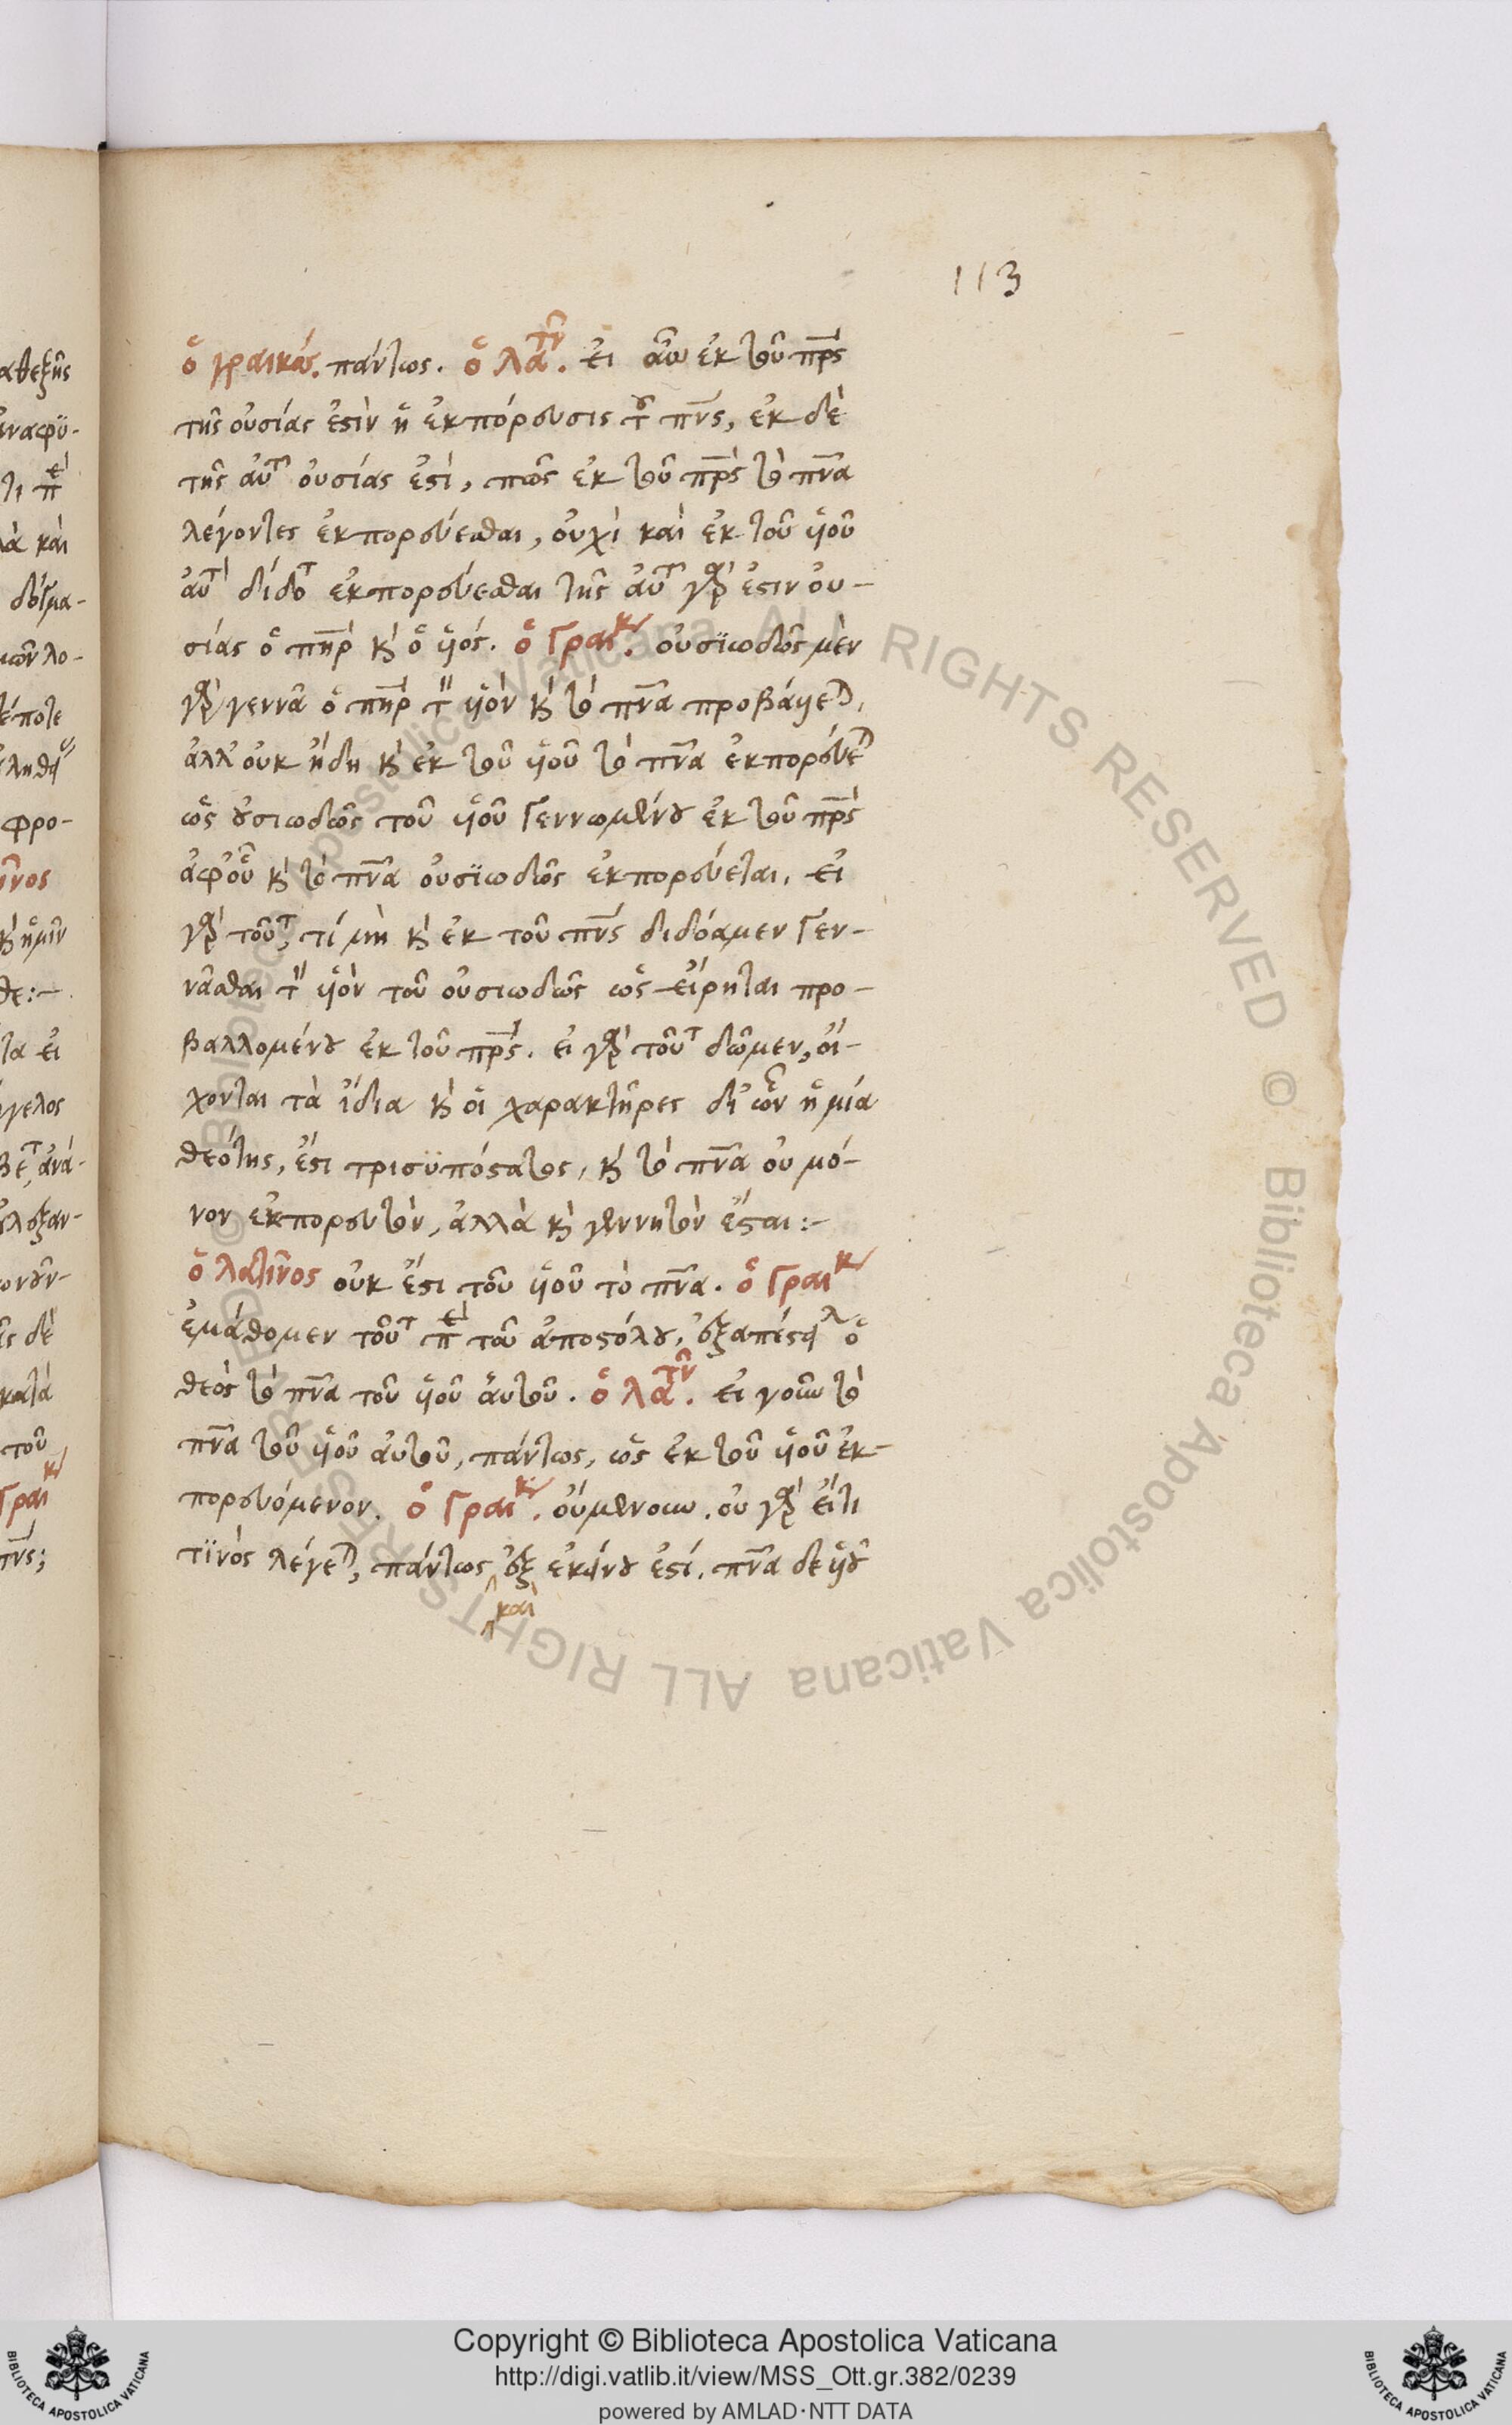 113
ὁ γραικός. πάντως. ὁ λατν. εἰ οὖν ἐκ τοῦ πρς
τῆς οὐσίας ἐστὶν ἡ ἐκπόρευσις τοῦ πνς, ἐκ δὲ
τῆς αὐτ οὐσίας ἐστὶ, πῶς ἐκ τοῦ πρς τὸ πνα
λέγοντες ἐκπορεύεσθαι, οὐχὶ καὶ ἐκ τοῦ υἱοῦ
αὐτ διδοτ ἐκπορεύεσθαι τῆς αὐτ γὰρ ἐστιν οὐ-
σίας ὁ πηρ κ ὁ υἱός. ὁ Γραικ. οὐσϊωδῶς μὲν
γὰρ γεννᾶ ὁ πηρ τ υἱὸν κ τὸ πνα προβάλλε,
ἀλλ' οὐκ ἤδη κ ἐκ τοῦ υἱοῦ τὸ πνα ἐκπορεύε
ὡς οὐσιωδῶς τοῦ υἱοῦ Γεννωμένου ἐκ τοῦ πρς
ἀφ' οὗ κ τὸ πνα οὐσϊωδῶς ἐκπορεύεται. εἰ
γὰρ τοῦτ, τί μὴ κ ἐκ τοῦ πνς διδόαμεν Γεν-
νᾶσθαι τ υἱὸν τοῦ οὐσιωδῶς ὡς εἴρηται προ-
βαλλομένου ἐκ τοῦ πρς. εἰ γὰρ τοῦτ δῶμεν, οἴ-
χονται τὰ ἴδια κ οἱ χαρακτῆρες δι' ὧν ἡ μία
θεότης, ἔστι τρισϋπόστατος, κ τὸ πνα οὐ μό-
νον ἐκπορευτὸν, ἀλλὰ κ γεννητὸν ἔσται:-
ὁ λατῖνος οὐκ ἔστι τοῦ υἱοῦ τὸ πνα. ὁ Γραικ
ἐμάθομεν τοῦτ π τοῦ ἀποστόλου, ἐξαπέστειλ ὁ
θεὸς τὸ πνα τοῦ υἱοῦ αὑτοῦ. ὁ λατν. εἰ γοῦν τὸ
πνα τοῦ υἱοῦ αὐτοῦ, πάντως, ὡς ἐκ τοῦ υἱοῦ ἐκ-
πορευόμενον. ὁ Γραικ. οὔμενουν. οὐ γὰρ εἴ τι
τϊνὸς λέγε, πάντως ἐξ ἐκείνου ἐστί. πνα δε υἱοῦ
καὶ
Copyright © Biblioteca Apostolica Vaticana
http://digi.vatlib.it/view/MSS_Ott.gr.382/0239
powered by AMLAD·NTT DATA